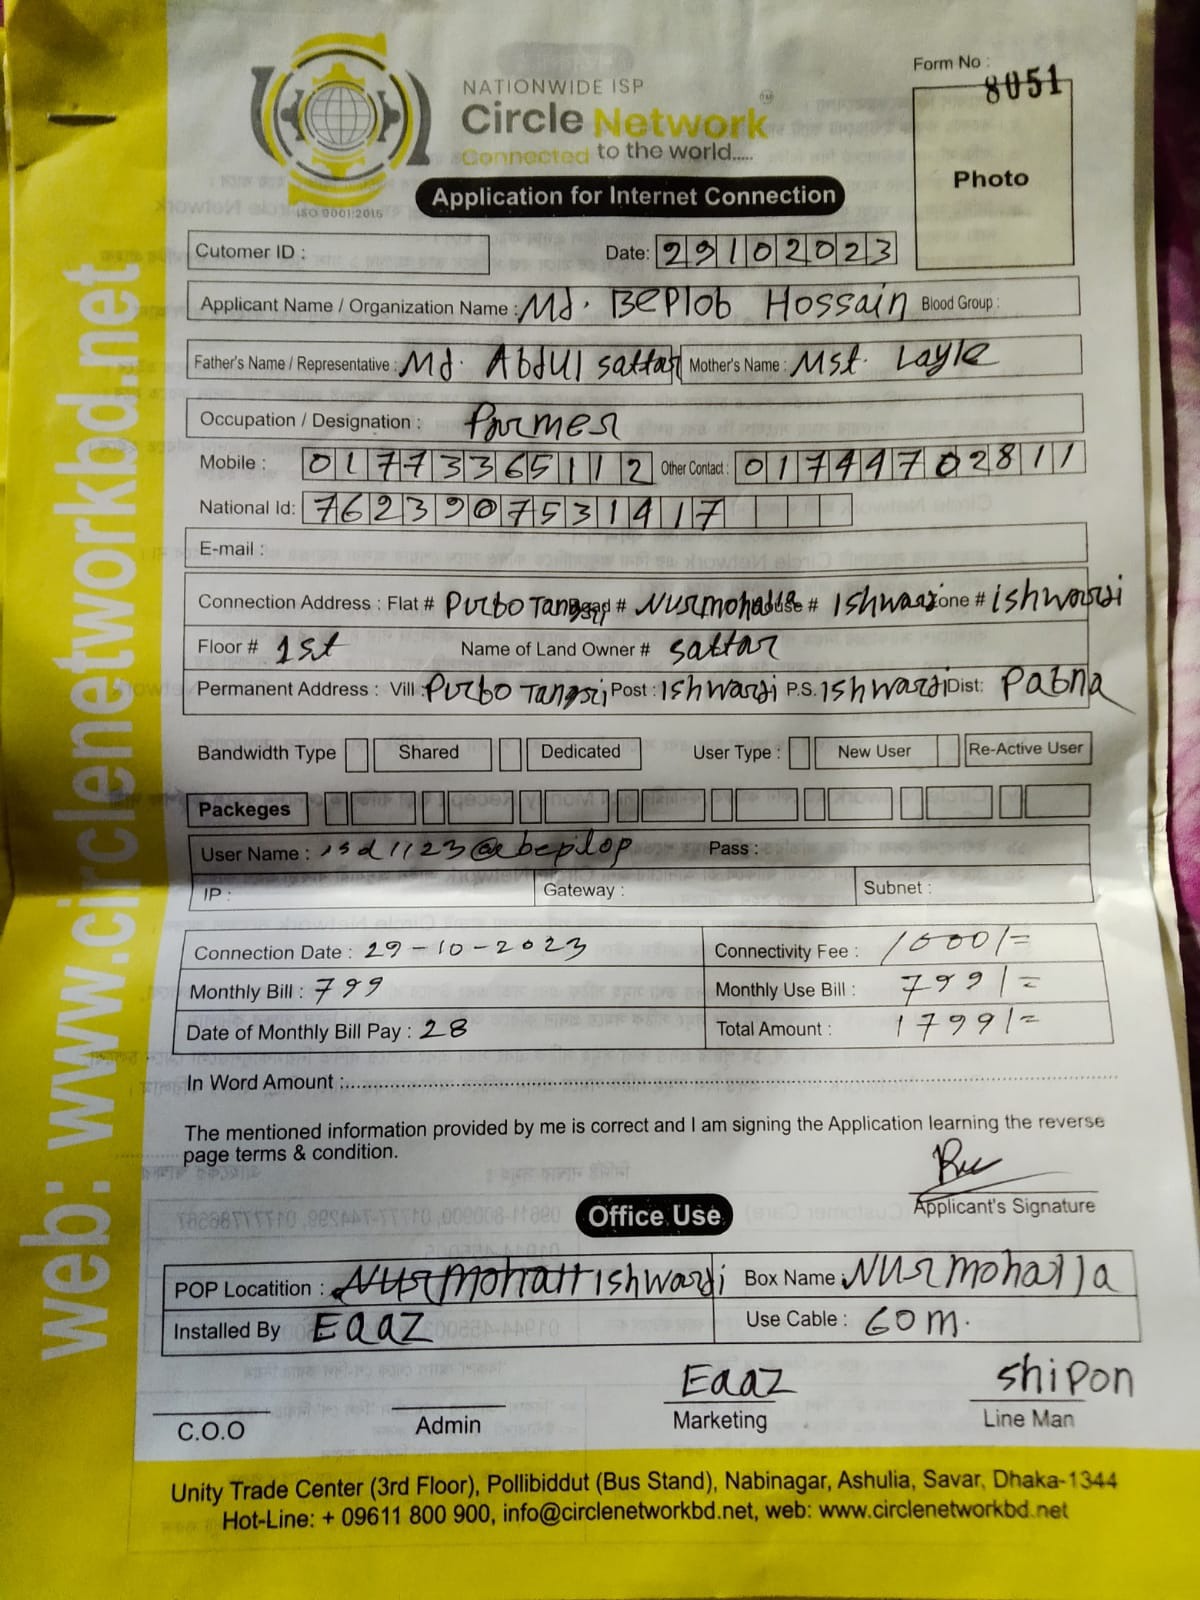 NATIONWIDE ISP
Circle Network
Connected to the world.....
ISO 9001:2015
Form No : 8051
Photo
Application for Internet Connection
Cutomer ID :
Date: 29102023
Applicant Name / Organization Name : Md. Beplob Hossain Blood Group :
Father's Name / Representative : Md. Abdul Sattar Mother's Name : Mst. Layle
Occupation / Designation : Farmer
Mobile : 01773365112 Other Contact : 01744702811
National Id: 7623907531417
E-mail :
Connection Address : Flat # Purbo Tangri Road # Nurmohalla House # Ishwardi Zone # ishwardi
Floor # 1st Name of Land Owner # Sattar
Permanent Address : Vill : Purbo Tangri Post : Ishwardi P.S. Ishwardi Dist: Pabna
Bandwidth Type Shared Dedicated User Type : New User Re-Active User
Packeges
User Name : isd1123@bepilop Pass :
IP : Gateway : Subnet :
Connection Date : 29-10-2023 Connectivity Fee : 1000/=
Monthly Bill : 799 Monthly Use Bill : 799/=
Date of Monthly Bill Pay : 28 Total Amount : 1799/=
In Word Amount :
The mentioned information provided by me is correct and I am signing the Application learning the reverse
page terms & condition.
Applicant's Signature
Office Use
POP Locatition : Ishwardi Box Name : Nurmohalla
Installed By Eaaz Use Cable : 60m.
Eaaz Shipon
C.O.O Admin Marketing Line Man
Unity Trade Center (3rd Floor), Pollibiddut (Bus Stand), Nabinagar, Ashulia, Savar, Dhaka-1344
Hot-Line: + 09611 800 900, info@circlenetworkbd.net, web: www.circlenetworkbd.net
web: www.circlenetworkbd.net